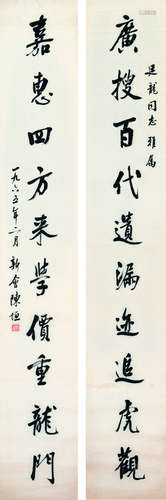 龍同志雅属
廣搜百代遺漏迹追虎觀
嘉惠四方来學價重龍門
一九六五年 月新會陳垣